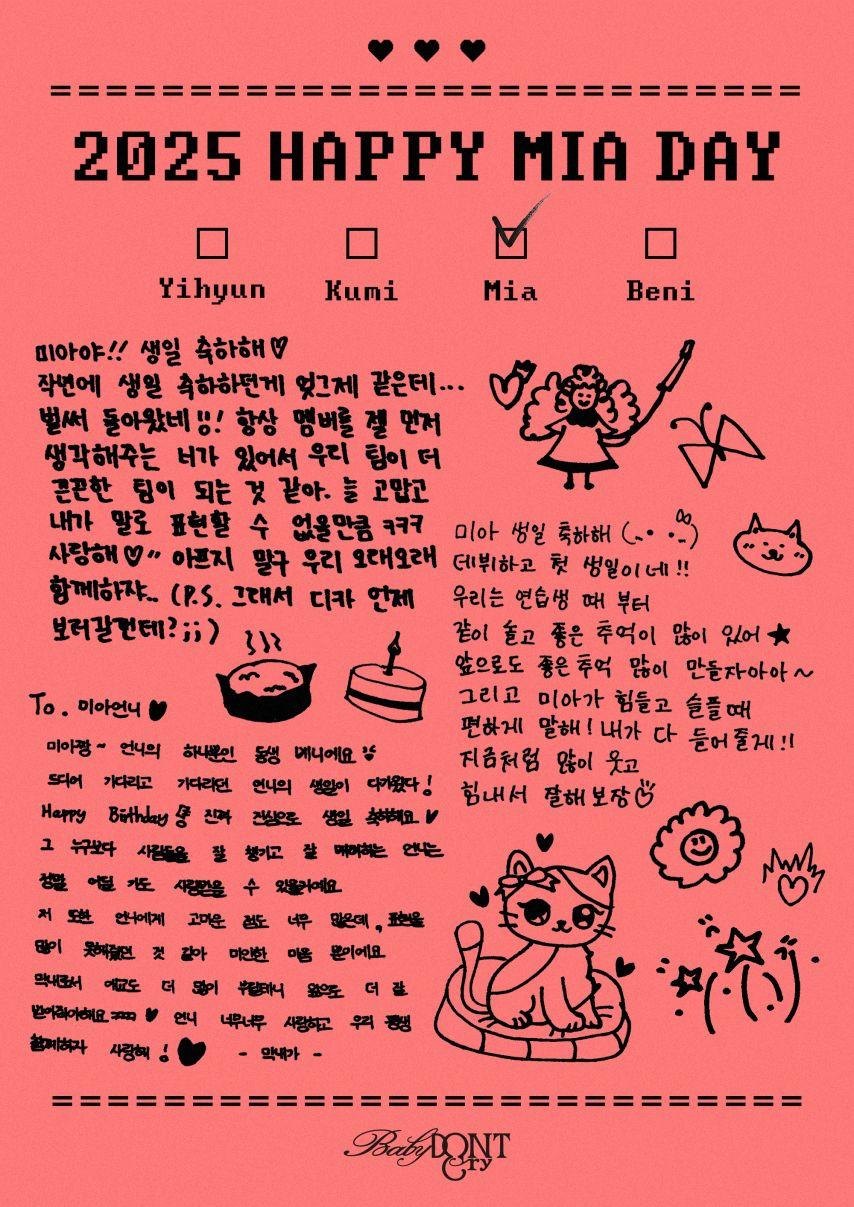 2025 HAPPY MIA DAY
Yihyun Kumi Mia Beni
미아야!! 생일 축하해♡
작년에 생일 축하하던게 엊그제 같은데...
벌써 돌아왔네!! 항상 멤버를 젤 먼저
생각해주는 너가 있어서 우리 팀이 더
끈끈한 팀이 되는 것 같아. 늘 고맙고
내가 말로 표현할 수 없을만큼 ㅋㅋㅋ
사랑해♡ 아프지 말구 우리 오래오래
함께하쟈.. (P.S. 그래서 디카 언제
보러갈건데?;;)
미아 생일 축하해
데뷔하고 첫 생일이네!!
우리는 연습생 때 부터
같이 울고 좋은 추억이 많이 있어★
앞으로도 좋은추억 많이 만들자아아~
그리고 미아가 힘들고 슬플때
편하게 말해! 내가 다 들어줄게!!
지금처럼 많이 웃고
힘내서 잘해보장
To. 미아언니♥
미아짱~ 언니의 하나뿐인 동생 베니에요
드디어 기다리고 기다리던 언니의 생일이 다가왔다!
Happy Birthday 진짜 진심으로 생일 축하해요♥
그 누구보다 사람들을 잘 챙기고 잘 언니는
정말 어딜 가도 사랑받을 수 있을거에요
저 또한 언니에게 고마운 점도 너무 많은데, 표현을
많이 못해줬던 것 같아 미안한 마음 뿐이에요
막내로서 애교도 더 많이 부릴테니 앞으로 더 잘
받아줘야해요 ♥ 언니 너무너무 사랑하고 우리 평생
함께하자 사랑해!♥ - 막내가 -
Baby DONT Cry